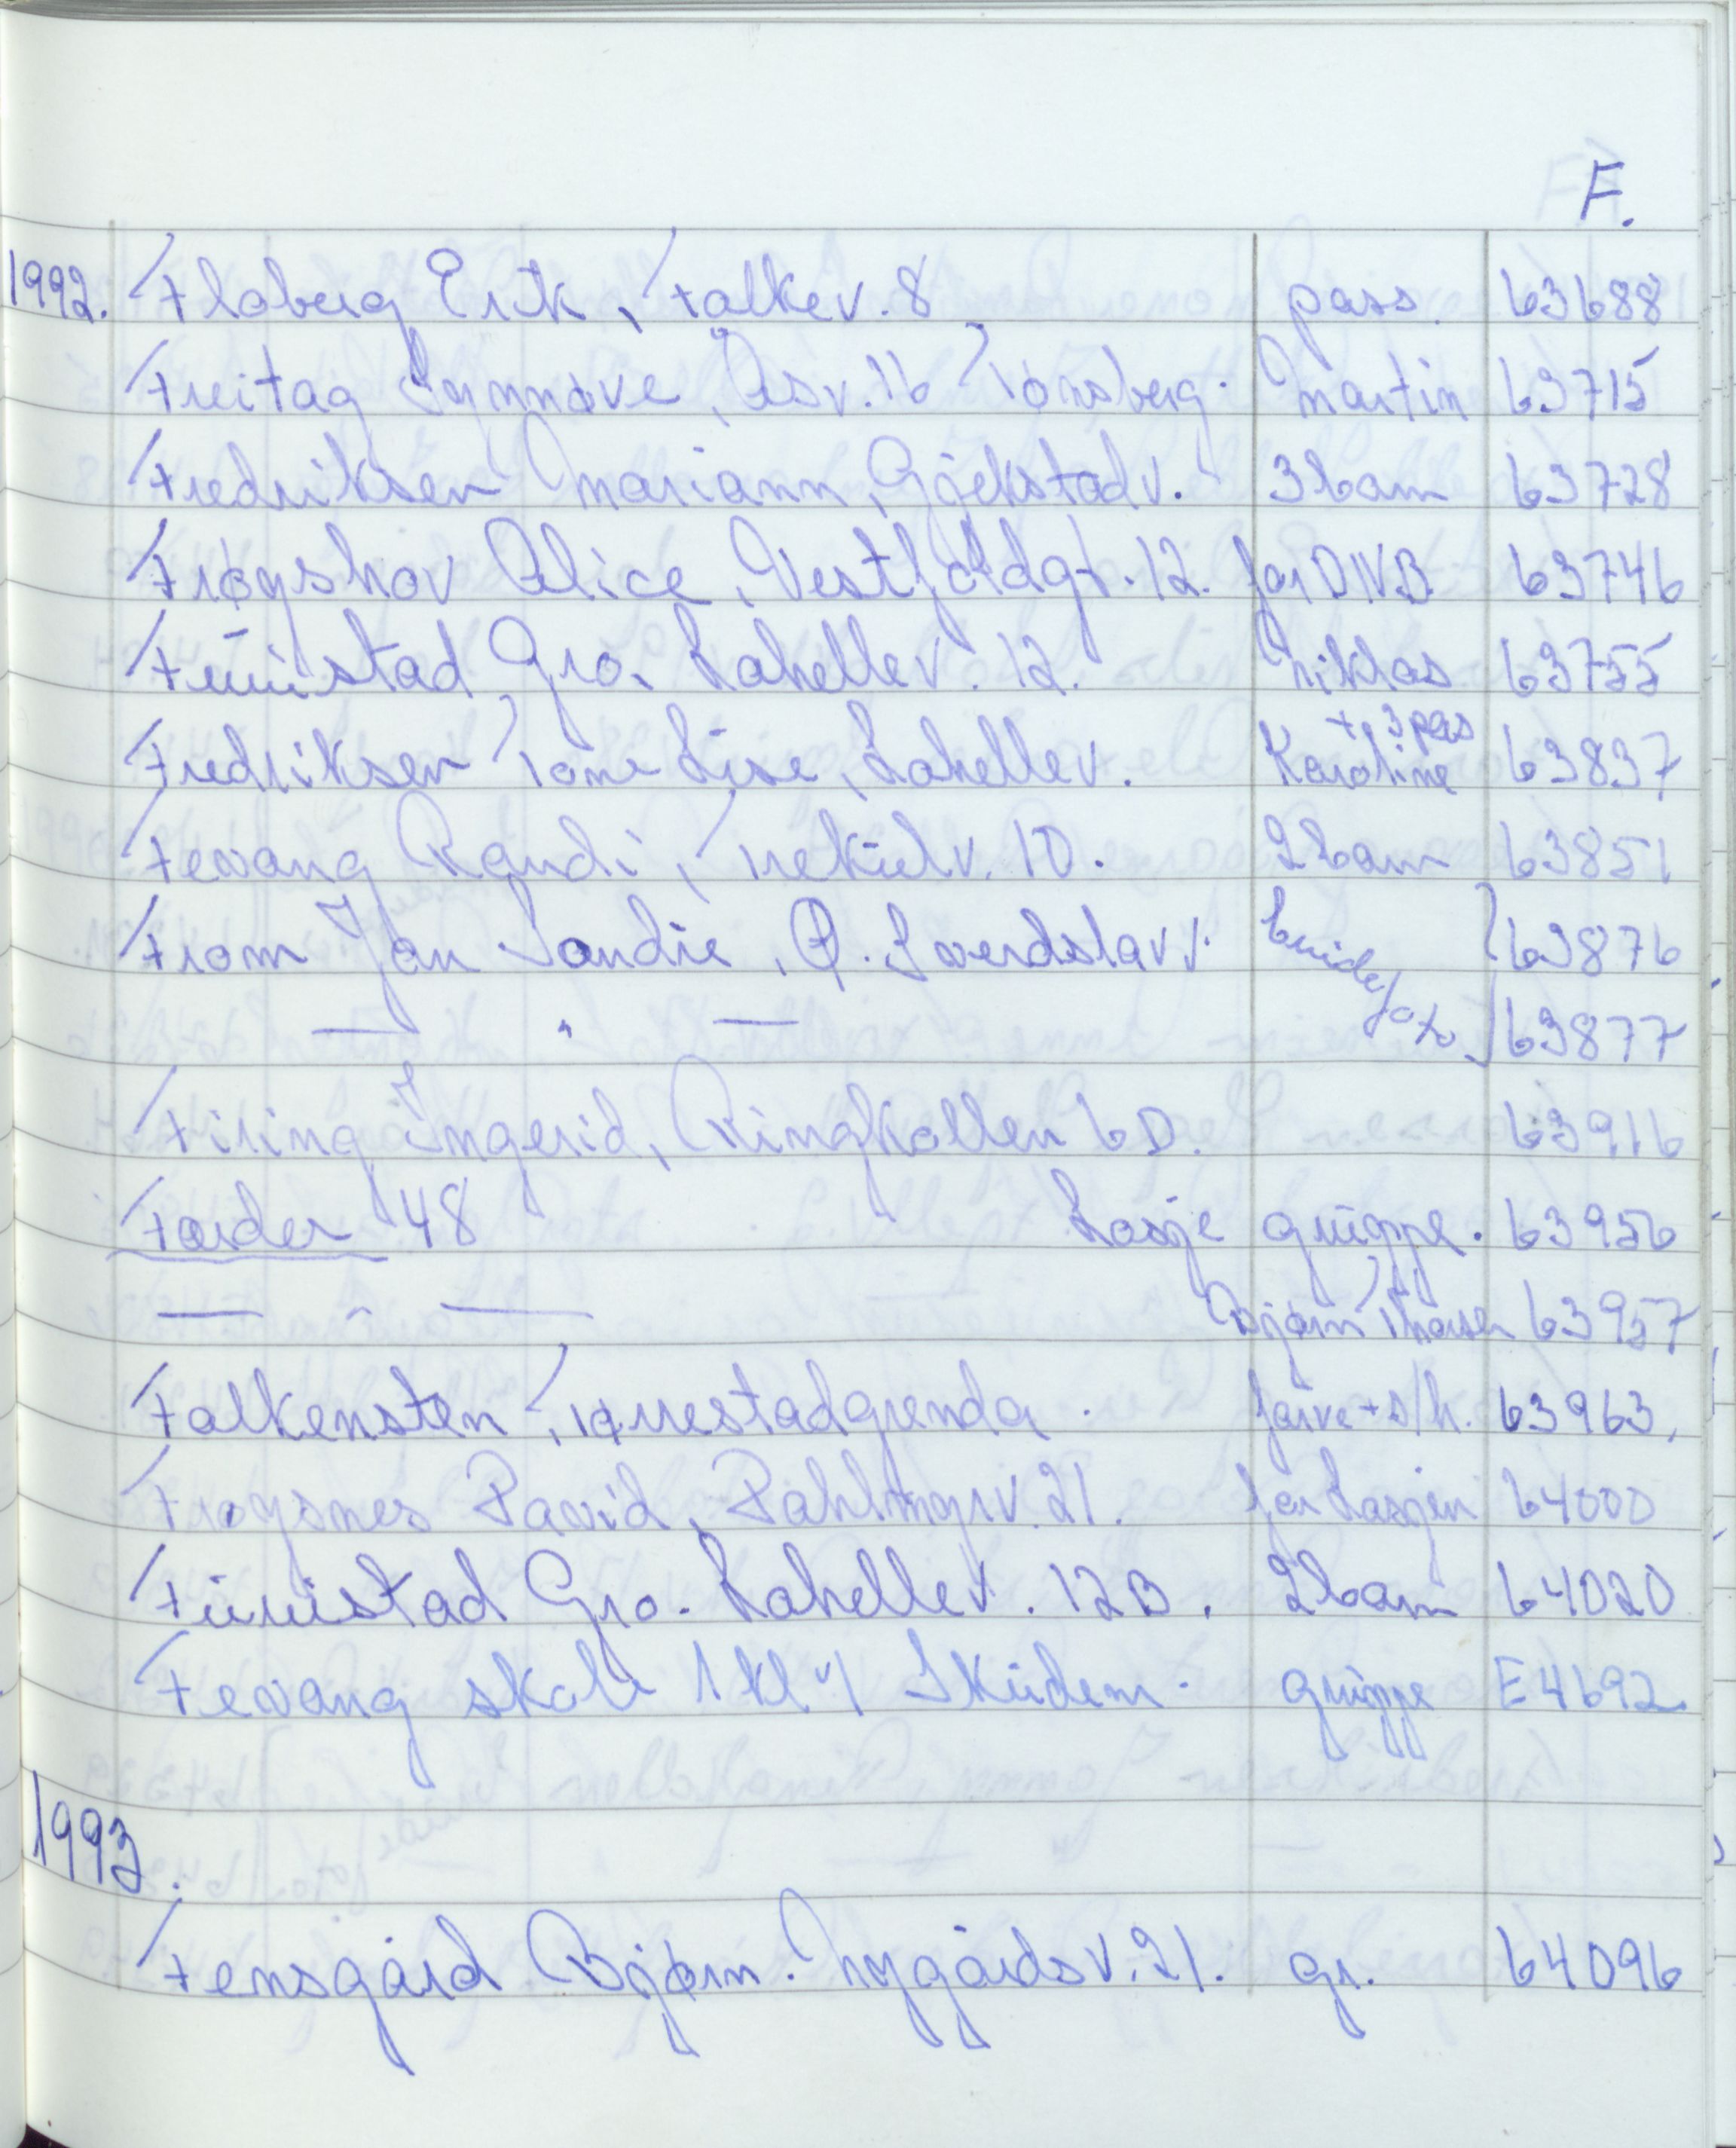 F.
1992. Floberg Erik, Falkev. 8 pass. 63688
Freitag Synnøve, Åsv. 16 Tønsberg. Martin 63715
Fredriksen Mariann, Gjekstadv. 3 barn 63728
Frøyshov Alice, Vestfoldgt. 12. for DNB 63746
Furustad Gro. Lahellev. 12. Niklas 63755
+ 3 pas
Fredriksen Tone Lise, Lahellev. Karoline 63837
Fevang Randi, Frekulv. 10. 2 barn 63851
From Jan Sondre, Ø. Sverdslavv. brude/ 63876
— " — foto 63877
Firing Ingerid, Ringkollen 6 D. 63916
Færder 48 Losje gruppe. 63956
— " — Bjørn Thorsen 63957
Falkensten, Førrestadgrenda. farve + s/h. 63963.
Frøysnes David, Dahlmyrv. 21. for Losjen 64000
Furustad Gro. Lahellev. 12 B. 2 barn 64020
Fevang skole 1 kl v/ Skudem. gruppe E 4692
1993.
Fensgård Bjørn. Nygårdsv. 21. gr. 64096